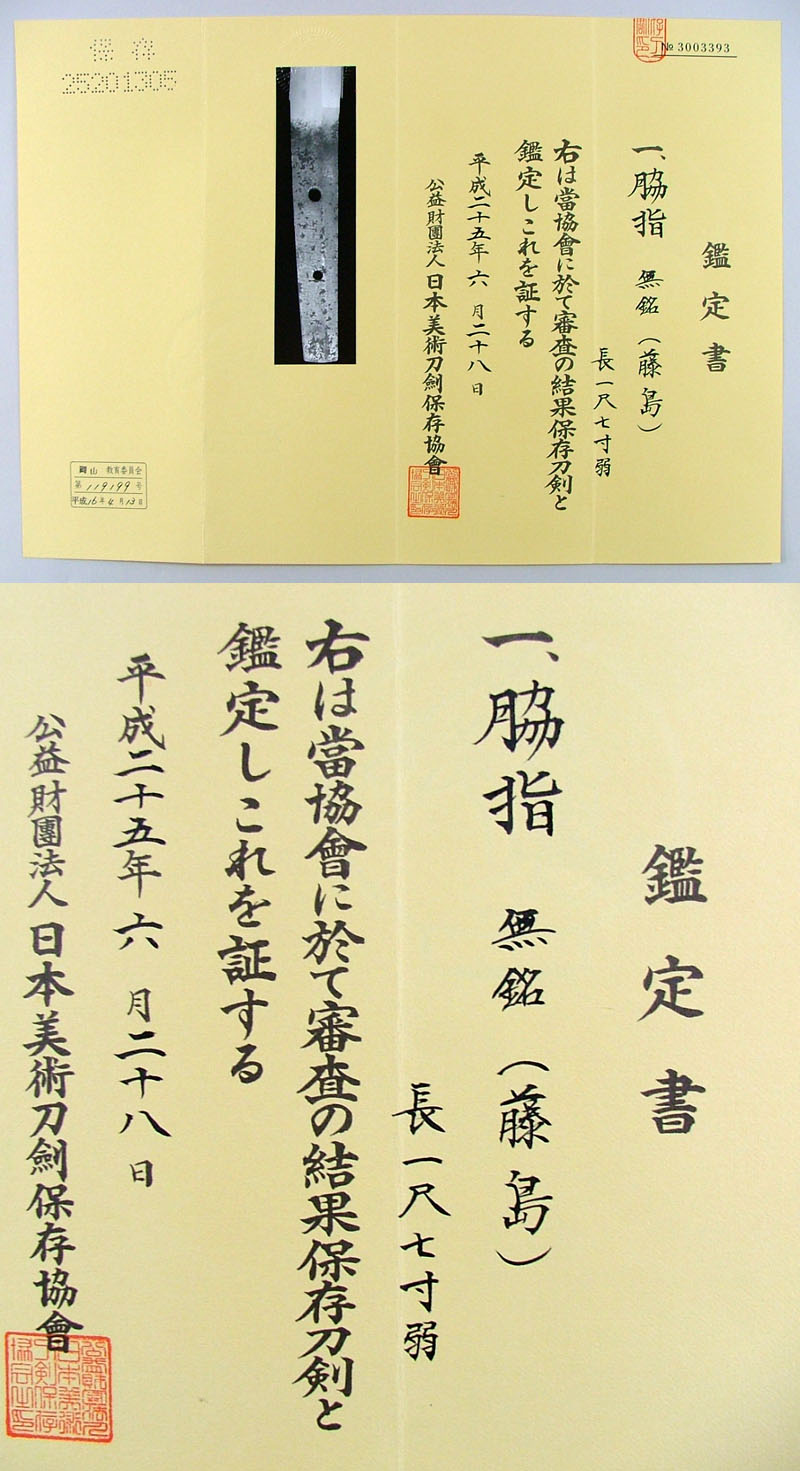 № 3003393
鑑定書
一、脇指 無銘（藤島）
長一尺七寸弱
右は當協會に於て審査の結果保存刀剣と
鑑定しこれを証する
平成二十五年六月二十八日
公益財團法人日本美術刀劍保存協會
保存
25201305
岡山 教育委員会
第119199号
平成16年4月13日
鑑定書
一、脇指 無銘（藤島）
長一尺七寸弱
右は當協會に於て審査の結果保存刀剣と
鑑定しこれを証する
平成二十五年六月二十八日
公益財團法人日本美術刀劍保存協會